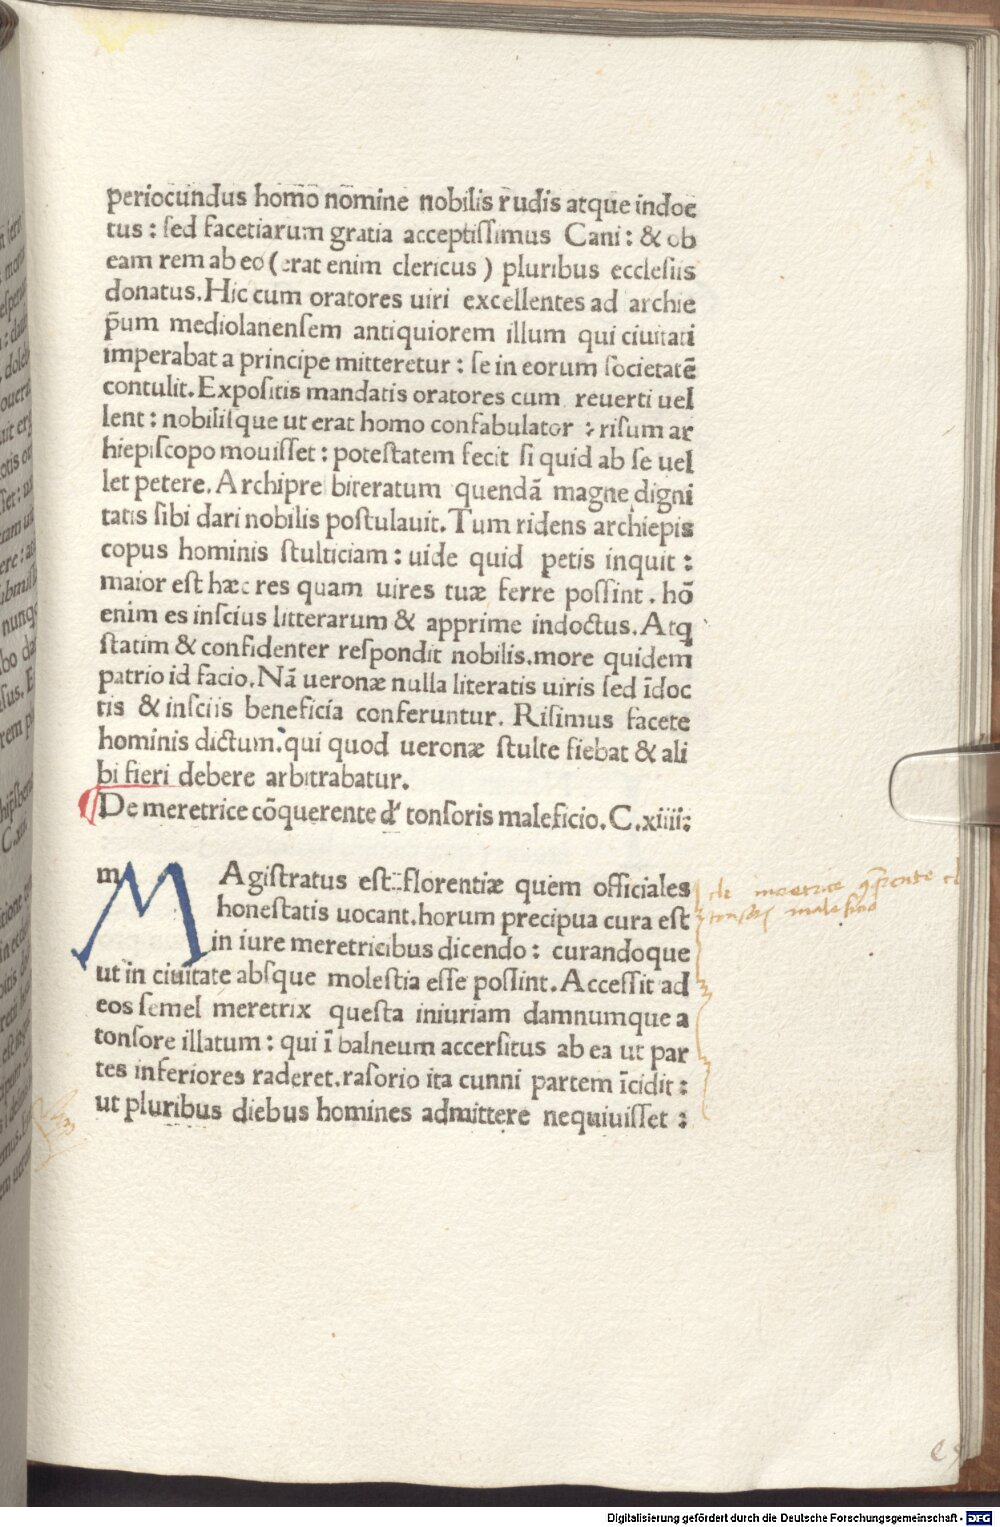 periocundus homo nomine nobilis rudis atque indoc
tus : sed facetiarum gratia acceptissimus Cani : & ob
eam rem ab eo ( erat enim clericus ) pluribus ecclesiis
donatus. Hic cum oratores uiri excellentes ad archie
p̄um mediolanensem antiquiorem illum qui ciuitati
imperabat a principe mitteretur : se in eorum societatē
contulit. Expositis mandatis oratores cum reuerti uel
lent : nobilisque ut erat homo confabulator : risum ar
hiepiscopo mouisset : potestatem fecit si quid ab se uel
let petere. Archipresbiteratum quendā magne digni
tatis sibi dari nobilis postulauit. Tum ridens archiepis
copus hominis stulticiam : uide quid petis inquit :
maior est hæc res quam uires tuæ ferre possint . hō
enim es inscius litterarum & apprime indoctus. Atq
statim & confidenter respondit nobilis. more quidem
patrio id facio. Nā ueronæ nulla literatis uiris sed īdoc
tis & insciis beneficia conferuntur. Risimus facete
hominis dictum. qui quod ueronæ stulte fiebat & ali
bi fieri debere arbitrabatur.
De meretrice cōquerente đ tonsoris maleficio. C. xiiii:
m M Agistratus est : florentiæ quem officiales
honestatis uocant. horum precipua cura est
in iure meretricibus dicendo : curandoque
ut in ciuitate absque molestia esse possint. Accessit ad
eos semel meretrix questa iniuriam damnumque a
tonsore illatum : qui ī balneum accersitus ab ea ut par
tes inferiores raderet. rasorio ita cunni partem īcidit :
ut pluribus diebus homines admittere nequiuisset :
de meretrice
maleficio
Digitalisierung gefördert durch die Deutsche Forschungsgemeinschaft - DFG